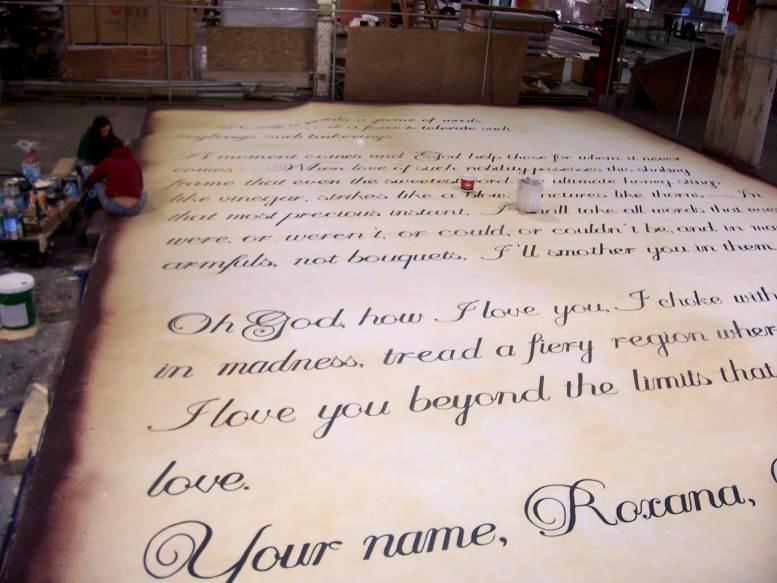 a game of words
a farce to tolerate such
anythings such tinkerings.
A moment comes and God help those for whom it never
comes When love of such nobility possesses this shaking
frame that even the sweetest word ultimate honey stings
like vinegar, strikes like a blow, punctures like thorns In
that most precious instant. I shall take all words that ever
were, or weren't, or could, or couldn't be, and in mad
armfuls, not bouquets, I'll smother you in them.
Oh God, how I love you, I choke with
in madness, tread a fiery region wher
I love you beyond the limits that
love.
Your name, Roxana,